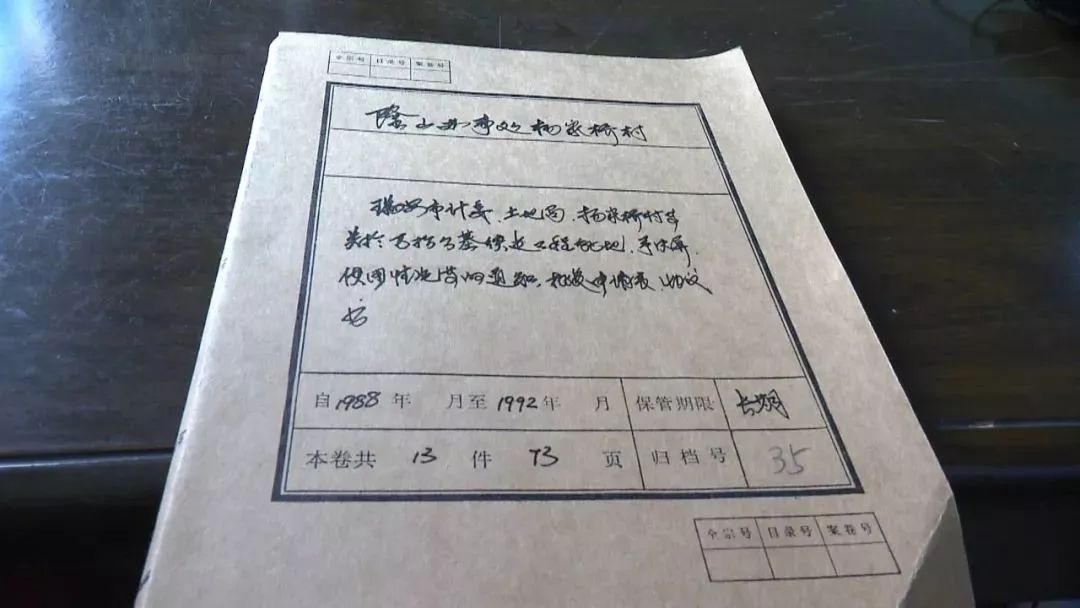 全宗号 目录号 案卷号
隆山办事处杨家桥村
瑞安市计委、土地局、杨家桥村等
关于
使用情况 的通知、 申请表、协议
书
自1988年 月至1992年 月 保管期限 长期
本卷共 13 件 73 页 归档号 35
全宗号 目录号 案卷号